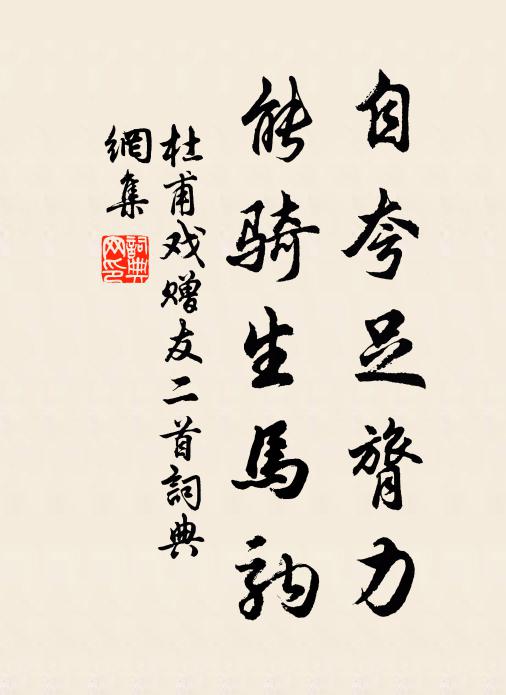 自夸足膂力
能骑生馬驹
杜甫戏赠友二首詞典
網集
詞典
网印